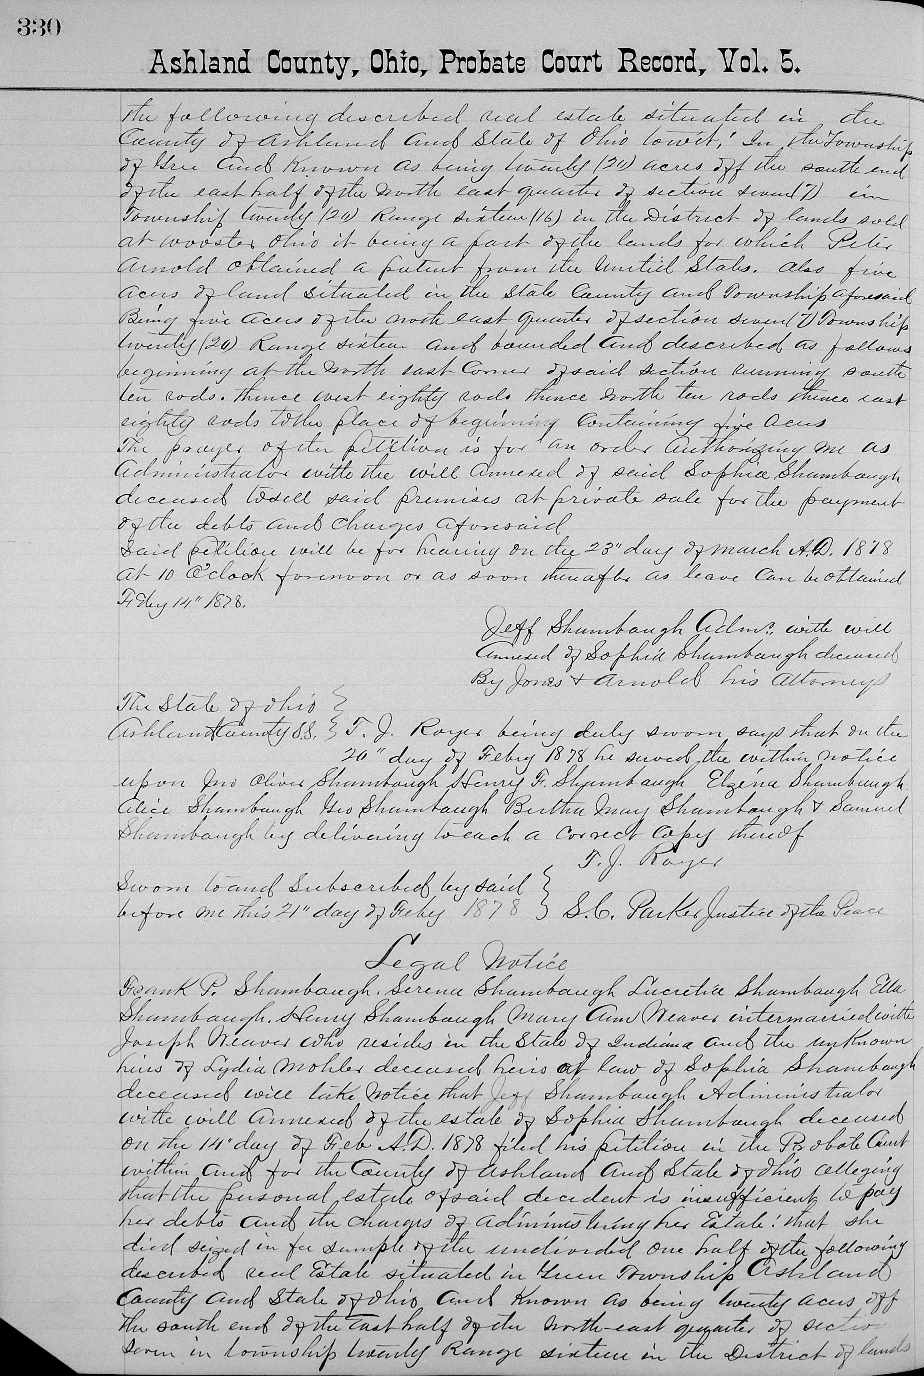 330
Ashland County, Ohio, Probate Court Record, Vol. 5.
the following described real estate situated in the
County of Ashland and State of Ohio towit: In the Township
of Gree and Known as being twenty (20) acres off the south end
of the east half of the North east quarter of section seven (7) in
Township twenty (20) Range sixteen (16) in the District of lands sold
at wooster Ohio it being a part of the lands for which Peter
Arnold obtained a patent from the United States. also five
acres of land situated in the State County and Township aforesaid
Being five acres of the north east quarter of section seven (7) Township
twenty (20) Range sixteen and bounded and described as follows
beginning at the North east Corner of said section running south
ten rods. thence west eighty rods thence North ten rods thence east
eighty rods to the place of beginning containing five acres
The prayer of the petition is for an order authorizing me as
Administrator with the will annexed of said Sophia Shambaugh
deceased to sell said premises at private sale for the payment
of the debts and charges aforesaid
Said petition will be for hearing on the 23" day of march A.D. 1878
at 10 O'clock forenoon or as soon thereafter as leave can be obtained
Feby 14" 1878.
Jeff Shambaugh Admr. with will
Annexed of Sophia Shambaugh deceased
By Jones & Arnold his Attorneys
The State of Ohio
Ashland County S.S. T. J. Royer being duly sworn says that on the
20" day of Feby 1878 he served the within notice
upon Jno Oliver Shambaugh Henry F. Shambaugh Elzena Shambaugh
Alice Shambaugh Geo Shambaugh Bertha May Shambaugh & Samuel
Shambaugh by delivering to each a correct copy thereof
T. J. Royer
Sworn to and Subscribed by said
before me this 21" day of Feby 1878 S. C. Parker Justice of the Peace
Legal Notice
Frank P. Shambaugh. Serena Shambaugh Lucretia Shambaugh Ella
Shambaugh. Henry Shambaugh Mary Ann Weaver intermarried with
Joseph Weaver who resides in the State of Indiana and the unknown
heirs of Lydia Mohler deceased heirs at law of Sophia Shambaugh
deceased will take Notice that Jeff Shambaugh Administrator
with will annexed of the estate of Sophia Shambaugh deceased
on the 14" day of Feb. A.D. 1878 filed his petition in the Probate Court
within and for the County of Ashland and State of Ohio alleging
that the personal estate of said decedent is insufficient to pay
her debts and the charges of administering her Estate: that she
died seized in fee simple of the undivided one half of the following
described real Estate situated in Green Township Ashland
County and State of Ohio and Known as being twenty acres off
the south end of the East half of the north-east quarter of section
seven in township twenty Range sixteen in the District of lands